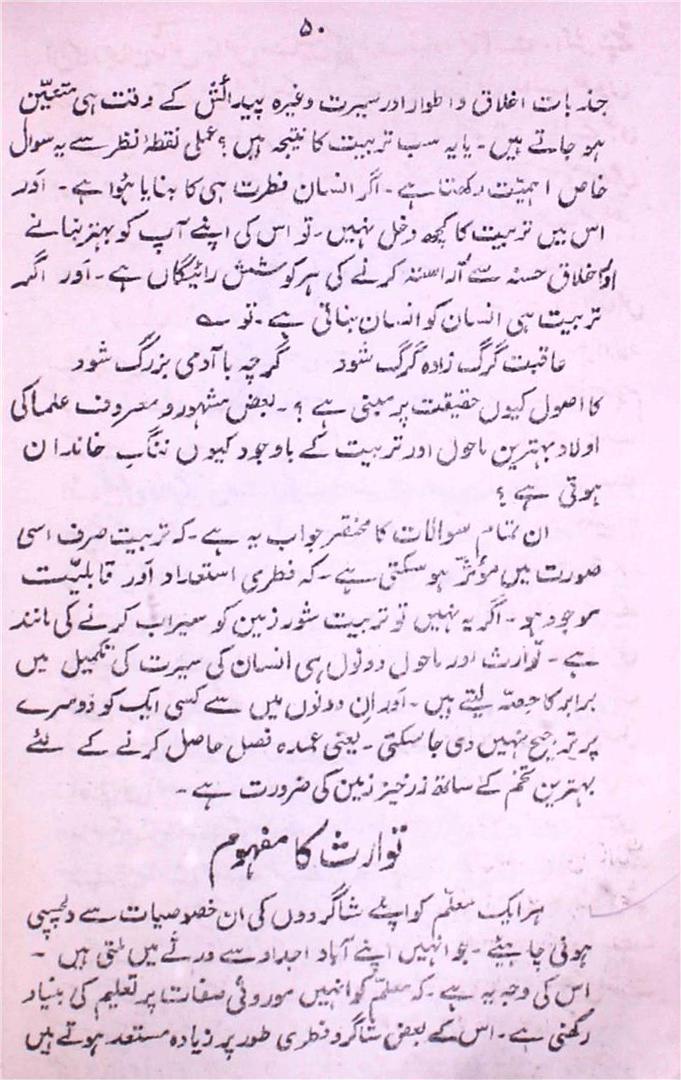 ۵۰
جذبات اخلاق و اطوار اور سیرت وغیرہ پیدائش کے وقت ہی متعیّن
ہو جاتے ہیں ۔ یا یہ سب تربیت کا نتیجہ ہیں ؟ عملی نقطۂ نظر سے یہ سوال
خاص اہمیّت رکھتا ہے ۔ اگر انسان فطرت ہی کا بنایا ہُوا ہے ۔ اَور
اس میں تربیت کا کچھ دخل نہیں ۔ تو اس کی اپنے آپ کو بہتر بنانے
اور اخلاق حسنہ سے آراستہ کرنے کی ہر کوشش رائیگاں ہے ۔ اَور اگر
تربیت ہی انسان کو انسان بناتی ہے ۔ تو ؎
عاقبت گرگ زادہ گرگ شود گرچہ با آدمی بزرگ شود
کا اصول کیوں حقیقت پر مبنی ہے ؟ ۔ بعض مشہور و معروف علما کی
اولاد بہترین ماحول اور تربیت کے باوجود کیوں ننگِ خاندان
ہوتی ہے ؟
ان تمام سوالات کا مختصر جواب یہ ہے ۔ کہ تربیت صرف اسی
صورت میں مؤثر ہو سکتی ہے ۔ کہ فطری استعداد اَور قابلیّت
موجود ہو ۔ اگر یہ نہیں تو تربیت شور زمین کو سیراب کرنے کی مانند
ہے ۔ توارث اور ماحول دونوں ہی انسان کی سیرت کی تکمیل میں
برابر کا حصّہ لیتے ہیں ۔ اَور اِن دونوں میں سے کسی ایک کو دُوسرے
پر ترجیح نہیں دی جا سکتی ۔ یعنی عمدہ فصل حاصل کرنے کے لئے
بہترین تخم کے ساتھ زرخیز زمین کی ضرورت ہے ۔
توارث کا مفہوم
ہر ایک معلّم کو اپنے شاگردوں کی ان خصوصیات سے دلچسپی
ہونی چاہیئے ۔ جو انہیں اپنے آباؤ اجداد سے ورثے میں ملتی ہیں ۔
اس کی وجہ یہ ہے ۔ کہ معلّم کو انہیں موروثی صفات پر تعلیم کی بنیاد
رکھنی ہے ۔ اس کے بعض شاگرد فطری طور پر زیادہ مستعد ہوتے ہیں